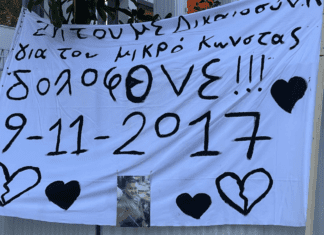 ζητουΜε Δικαιοσύνη
για τον μικρό Κωνστας
δολοφΟΝΕ!!!
9-11-2017